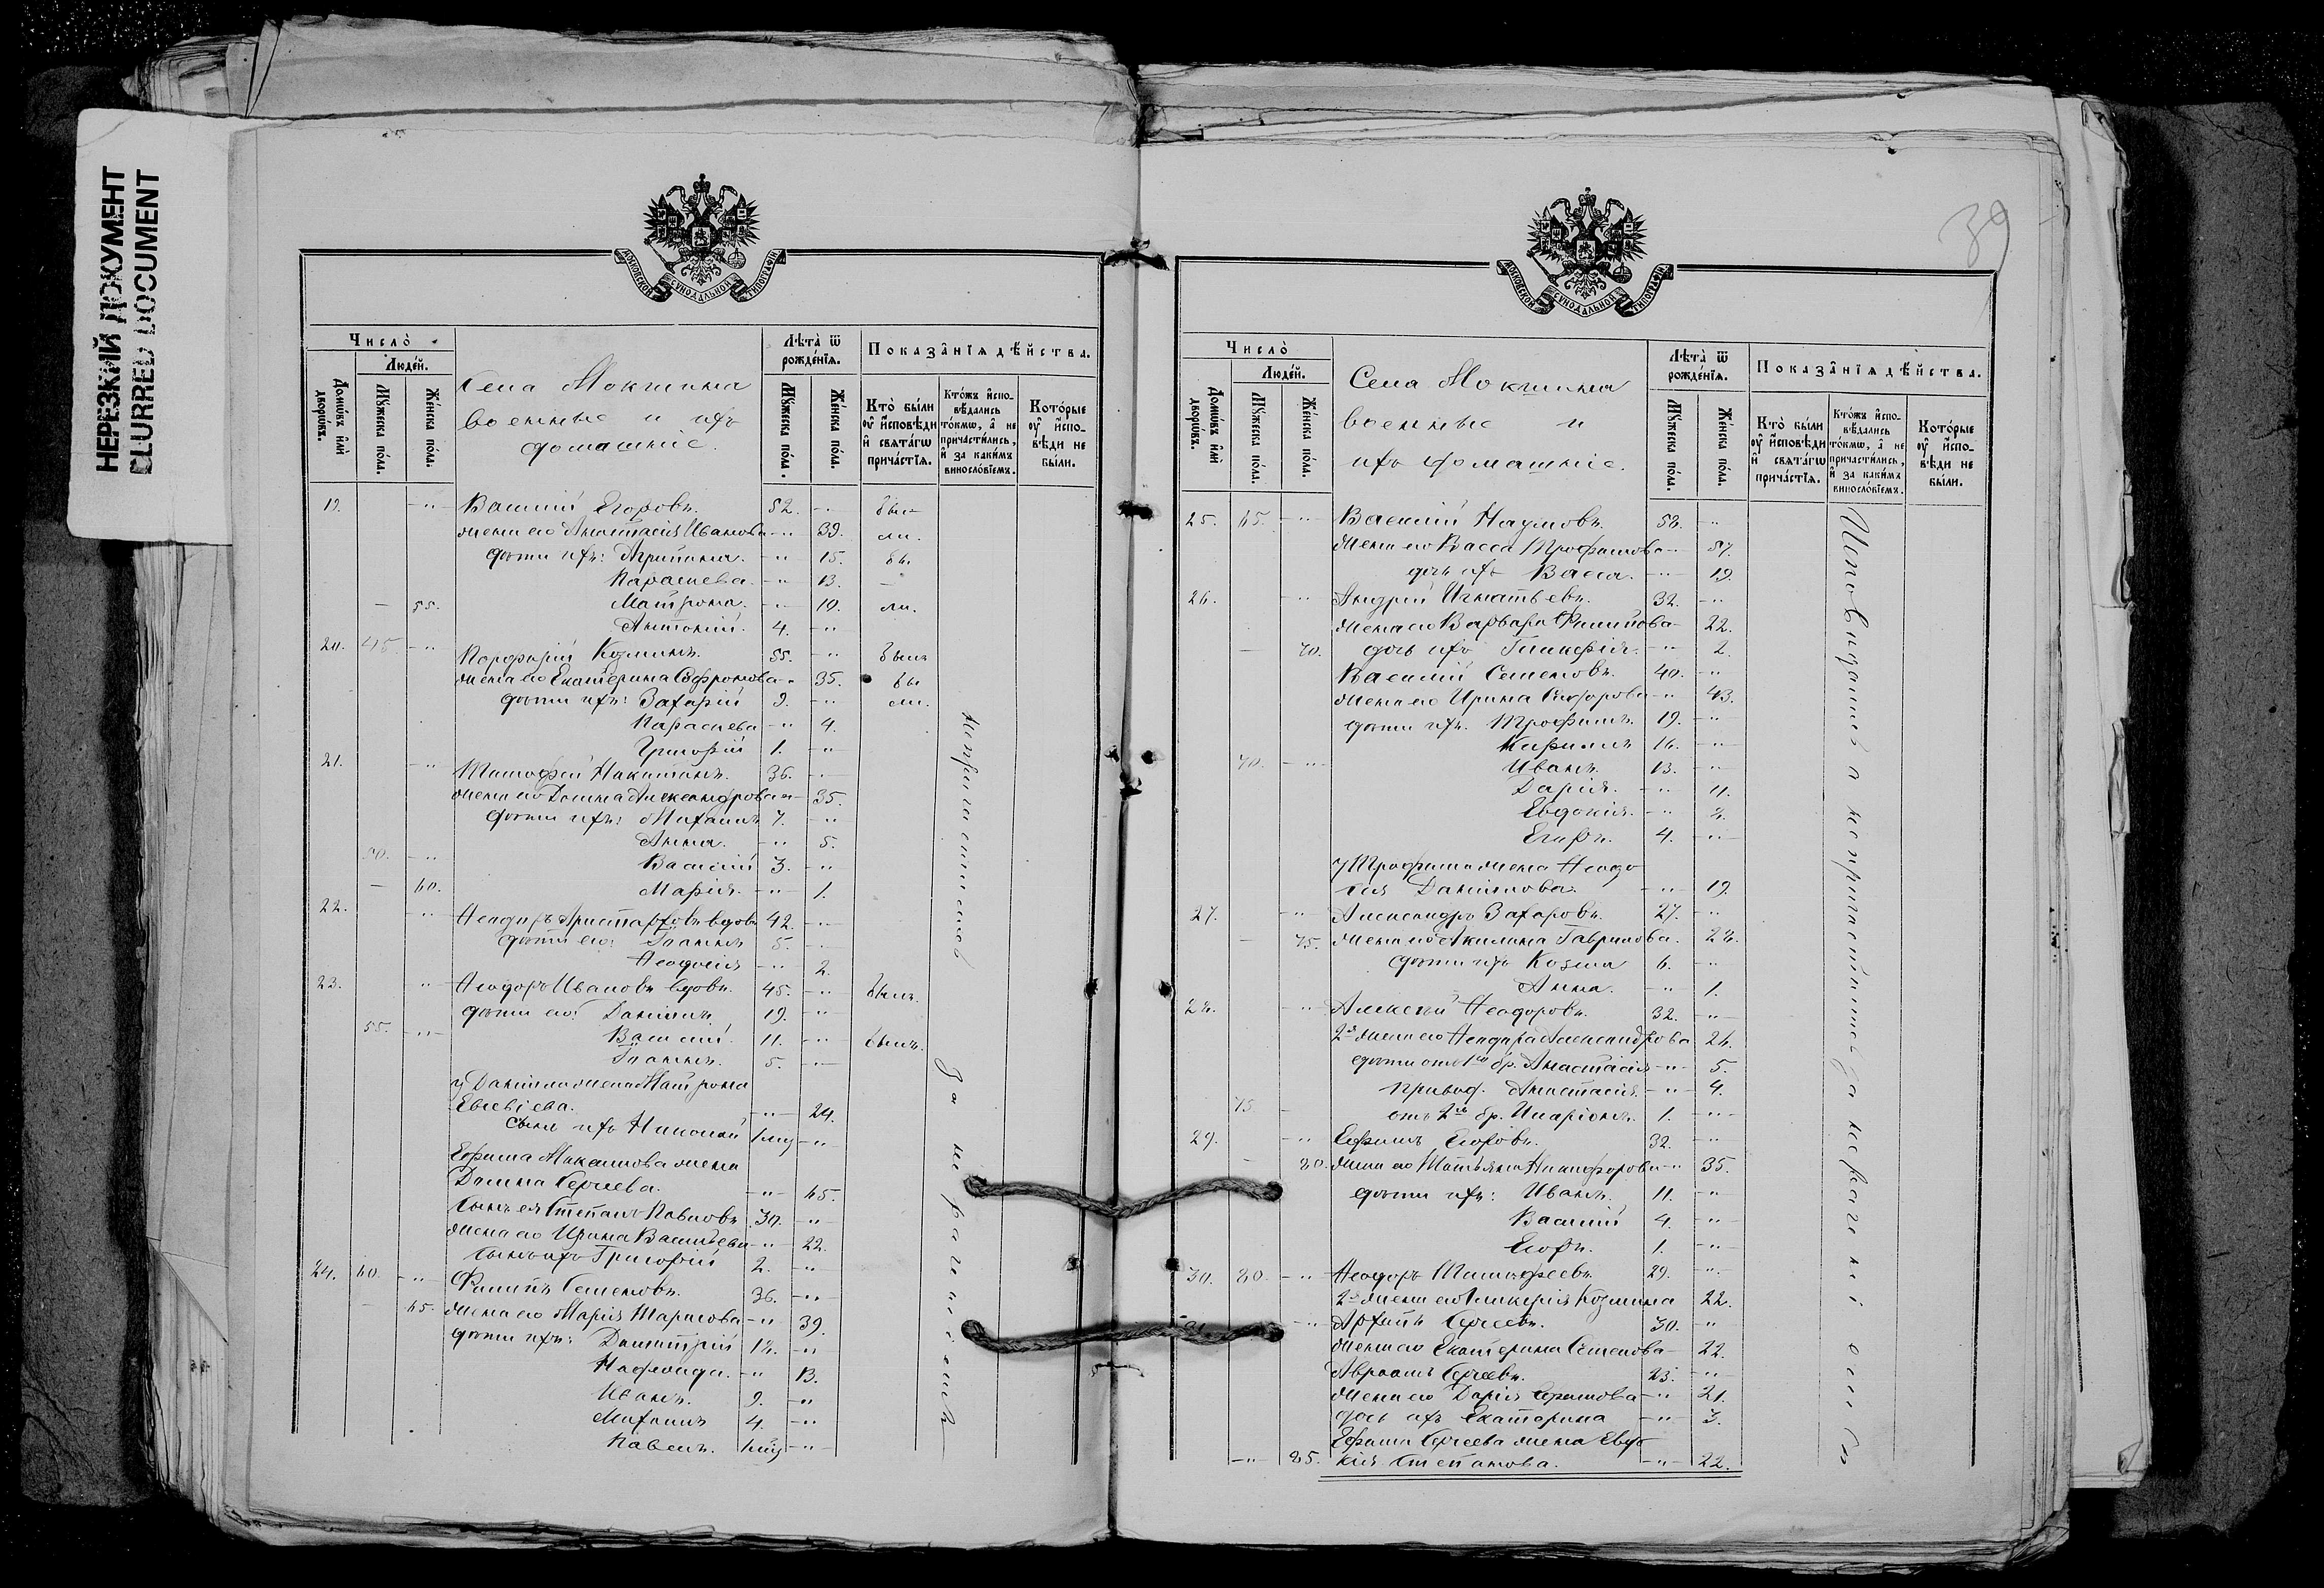 НЕРЕЗКИЙ ДОКУМЕНТ
BLURRED DOCUMENT
МОСКОВСКОЙ СѴНОДАЛЬНОЙ ТИПОГРАФІИ
Число̀
Люде́й.
Домѡ́въ и҆лѝ дворѡ́въ.
Мꙋ́жеска по́ла.
Же́нска по́ла.
Села Мокшина
военные и ихъ
домашніе.
Лѣта̀ ѿ рожде́нїѧ.
Мꙋ́жеска по́ла.
Же́нска по́ла.
Показа̂нїѧ дѣ́йства.
Кто̀ бы́ли оу҆ и҆́сповѣди и҆ свѧта́гѡ прича́стїѧ.
Кто́жъ и҆спо-
вѣ́дались
то́кмѡ, а҆ не
причасти́лись,
и҆ за каки́мъ
винослѡ́вїемъ.
Кото́рые
оу҆ и҆́спо-
вѣди не
бы́ли.
19. -"- Василій Егоровъ. 52. -"-
жена его Анастасія Иванова -"- 39.
дѣти ихъ: Агрипина. -"- 15.
Параскева. -"- 13.
- 55. Матрона. -"- 10.
Антоній. 4. -"-
20. 45. -"- Порфирій Козминъ. 55. -"- былъ
жена его Екатерина Софронова -"- 35.
дѣти ихъ: Захарій 9. -"-
Параскева -"- 4.
Григорій 1. -"-
21. -"- Тимофей Никитинъ. 36. -"-
жена его Домна Александрова -"- 35.
дѣти ихъ: Михаилъ 7. -"-
Анна. -"- 5.
50. -"- Василій 3. -"-
- 60. Марія. -"- 1.
22. -"- Ѳеодоръ Аристарховъ вдовъ 42. -"-
дѣти его: Іоаннъ 5. -"-
Ѳеодосія -"- 2.
23. -"- Ѳеодоръ Ивановъ вдовъ. 45. -"- былъ.
дѣти его: Даніилъ. 19. -"-
55. -"- Василій. 11. -"- былъ.
Іоаннъ. 5. -"-
у Даніила жена Матрона
Евсевіева. -"- 24.
сынъ ихъ Николай -"-
Ефима Максимова жена
Домна Сергеева. -"- 65.
сынъ ея Степанъ Павловъ 30. -"-
жена его Ирина Васильева -"- 22.
сынъ ихъ Григорій 2. -"-
24. 60. -"- Филипъ Семеновъ. 36. -"-
- 65. жена его Марія Тарасова -"- 39.
дѣти ихъ: Димитрій -"-
13.
Иванъ. 9. -"-
Михаилъ 4. -"-
Павелъ. -"-
непричастился за нераченіемъ
39
МОСКОВСКОЙ СѴНОДАЛЬНОЙ ТИПОГРАФІИ
Число̀
Люде́й.
Домѡ́въ и҆лѝ дворѡ́въ.
Мꙋ́жеска по́ла.
Же́нска по́ла.
Села Мокшина
военные и
ихъ домашніе.
Лѣта̀ ѿ рожде́нїѧ.
Мꙋ́жеска по́ла.
Же́нска по́ла.
Показа̂нїѧ дѣ́йства.
Кто̀ бы́ли оу҆ и҆́сповѣди и҆ свѧта́гѡ прича́стїѧ.
Кто́жъ и҆спо-
вѣ́дались
то́кмѡ, а҆ не
причасти́лись,
и҆ за каки́мъ
винослѡ́вїемъ.
Кото́рые
оу҆ и҆́спо-
вѣди не
бы́ли.
25. 65. -"- Василій Наумовъ. 58. -"-
жена его Васса Трофимова -"- 57.
дочь ихъ Васса. -"- 19.
26. -"- Андрей Игнатьевъ. 32. -"-
жена его Варвара Филипова - 22.
- 70. дочь ихъ Гликерія -"- 2.
Василій Семеновъ. 40. -"-
жена его Ирина -"- 43.
дѣти ихъ. Трофимъ. 19. -"-
Кирилъ 16. -"-
70. -"- Иванъ. 13. -"-
Дарія. -"- 11.
Евдокія. -"-
Егоръ. 4. -"-
у Трофима жена Ѳеодо
сія Даніилова. -"- 19.
27. -"- Александръ Захаровъ. 27. -"-
- 75. жена его Акилина Гаврилова.
дѣти ихъ Козма 6. -"-
Анна. -"- 1.
-"- Алексѣй Ѳеодоровъ. 32. -"-
2-я жена его Александрова
дѣти отъ 1-го бр. Анастасія -"- 5.
привод. Анастасія. -"- 4.
75. - отъ 2-го бр. Иларіонъ. 1. -"-
29. -"- Ефимъ Егоровъ. 32. -"-
- 80. жена его Татьяна Никифорова -"- 35.
дѣти ихъ: Иванъ. 11. -"-
Василій 4. -"-
Егоръ. 1. -"-
30. 80. -"- Ѳеодоръ Тимофеевъ. 29. -"-
2-я жена его Гликерія Козмина 22.
-"- Архипъ Сергеевъ. 30. -"-
жена его Екатерина Семенова - 22.
Авраамъ Сергеевъ. 23. -"-
жена его Дарія Ефимова -"- 21.
дочь ихъ Екатерина -"- 3.
Ефима Сергеева жена Евдо
-"- 85. кія Степанова. -"- 22.
Исповѣдались а непричастились за нераченіемъ